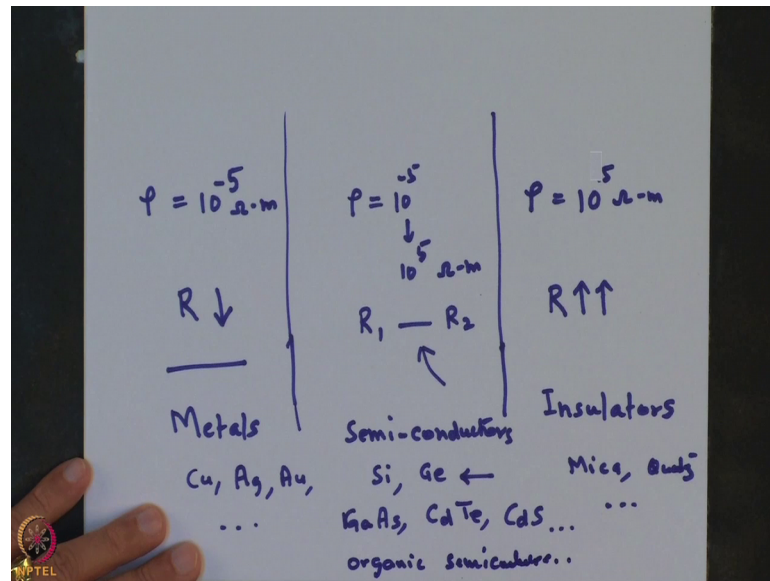 ρ = 10⁻⁵ Ω-m
R ↓
Metals
Cu, Ag, Au,
...
ρ = 10⁻⁵
↓
10⁵ Ω-m
R₁ — R₂
Semi-conductors
Si, Ge ←
GaAs, CdTe, CdS...
organic semiculure..
ρ = 10⁵ Ω-m
R ↑↑
Insulators
Mica, Quatz
...
NPTEL